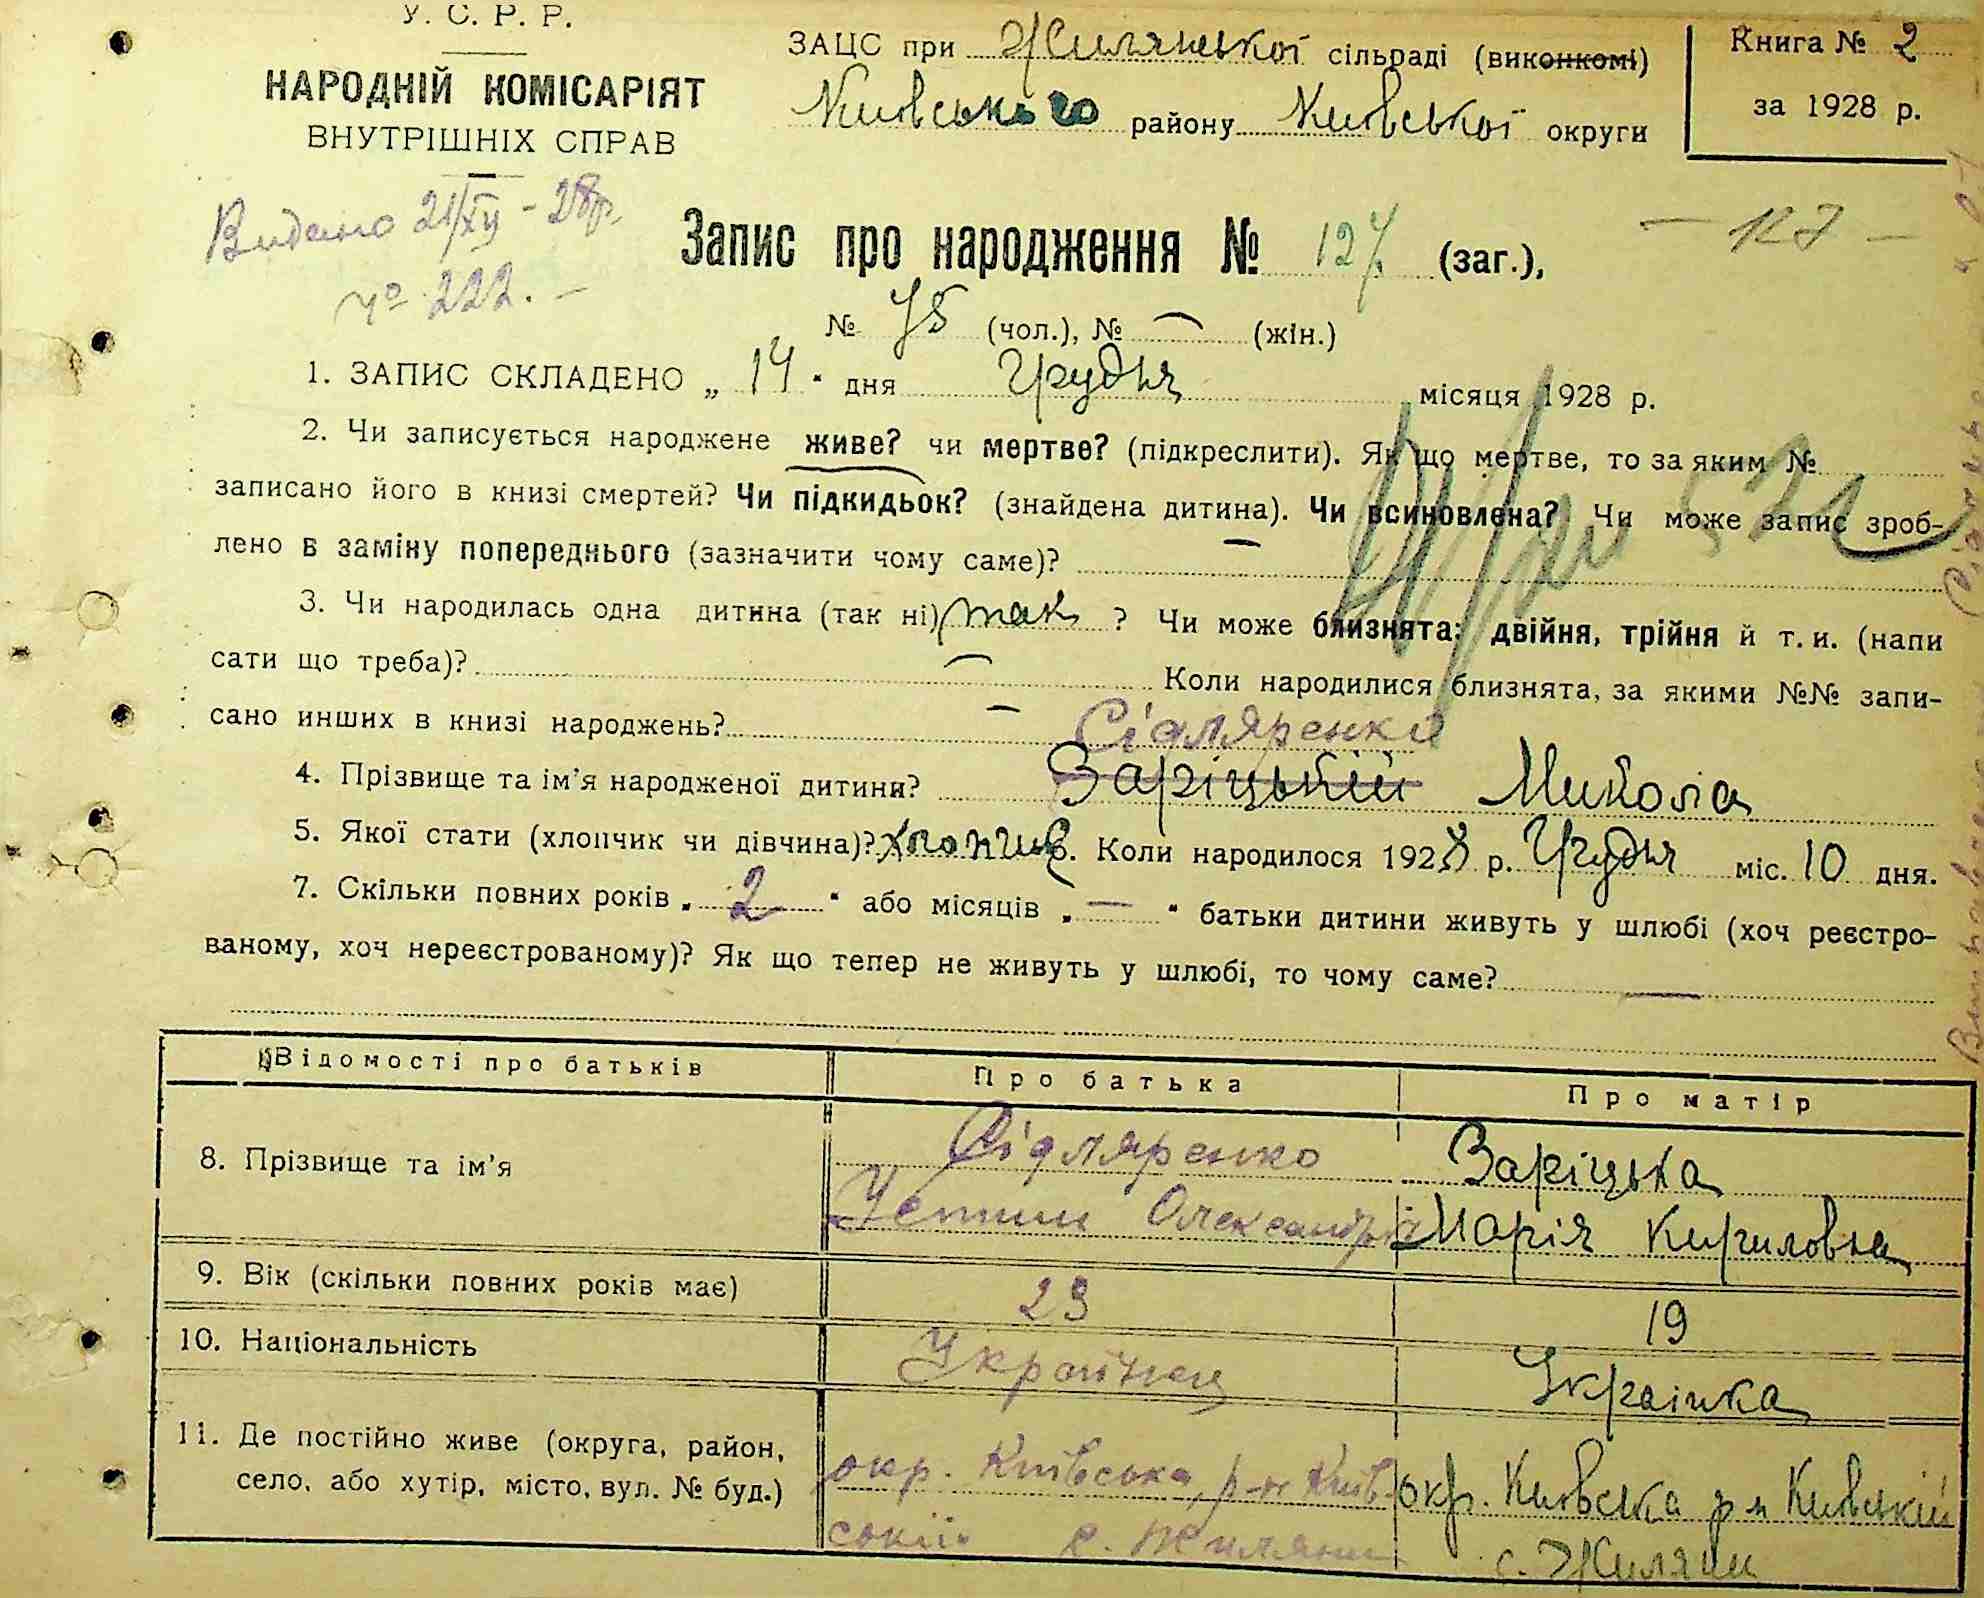 У. С. Р. Р.
НАРОДНІЙ КОМІСАРІЯТ
ВНУТРІШНІХ СПРАВ
ЗАЦС при Жилянської сільраді (виконкомі)
Київського району Київської округи
Книга № 2
за 1928 р.
Видано 21/XII - 28р.
№ 222. -
Запис про народження № 127 (заг.),
- 127 -
№ 75 (чол.), № — (жін.)
1. ЗАПИС СКЛАДЕНО „ 14 " дня Грудня місяця 1928 р.
2. Чи записується народжене живе? чи мертве? (підкреслити). Як що мертве, то за яким №
записано його в книзі смертей? Чи підкидьок? (знайдена дитина). Чи всиновлена? Чи може запис зроб-
лено в заміну попереднього (зазначити чому саме)? —
3. Чи народилась одна дитина (так ні) так ? Чи може близнята: двійня, трійня й т. и. (напи
сати що треба)? — Коли народилися близнята, за якими №№ запи-
сано инших в книзі народжень? —
Сідляренко
4. Прізвище та ім'я народженої дитини? Заріцький Микола
5. Якої стати (хлопчик чи дівчина)? хлопчик 6. Коли народилося 1928 р. Грудня міс. 10 дня.
7. Скільки повних років „ 2 " або місяців „ — " батьки дитини живуть у шлюбі (хоч реєстро-
ваному, хоч нереєстрованому)? Як що тепер не живуть у шлюбі, то чому саме? —
Відомості про батьків Про батька Про матір
8. Прізвище та ім'я Сідляренко Заріцька
Устин Олександр Марія Кириловна
9. Вік (скільки повних років має) 23 19
10. Національність Українец Українка
11. Де постійно живе (округа, район,
село, або хутір, місто, вул. № буд.)
окр. Київська, р-н Київ-
ський с. Жиляни
окр. Київська р н Київський
с. Жиляни